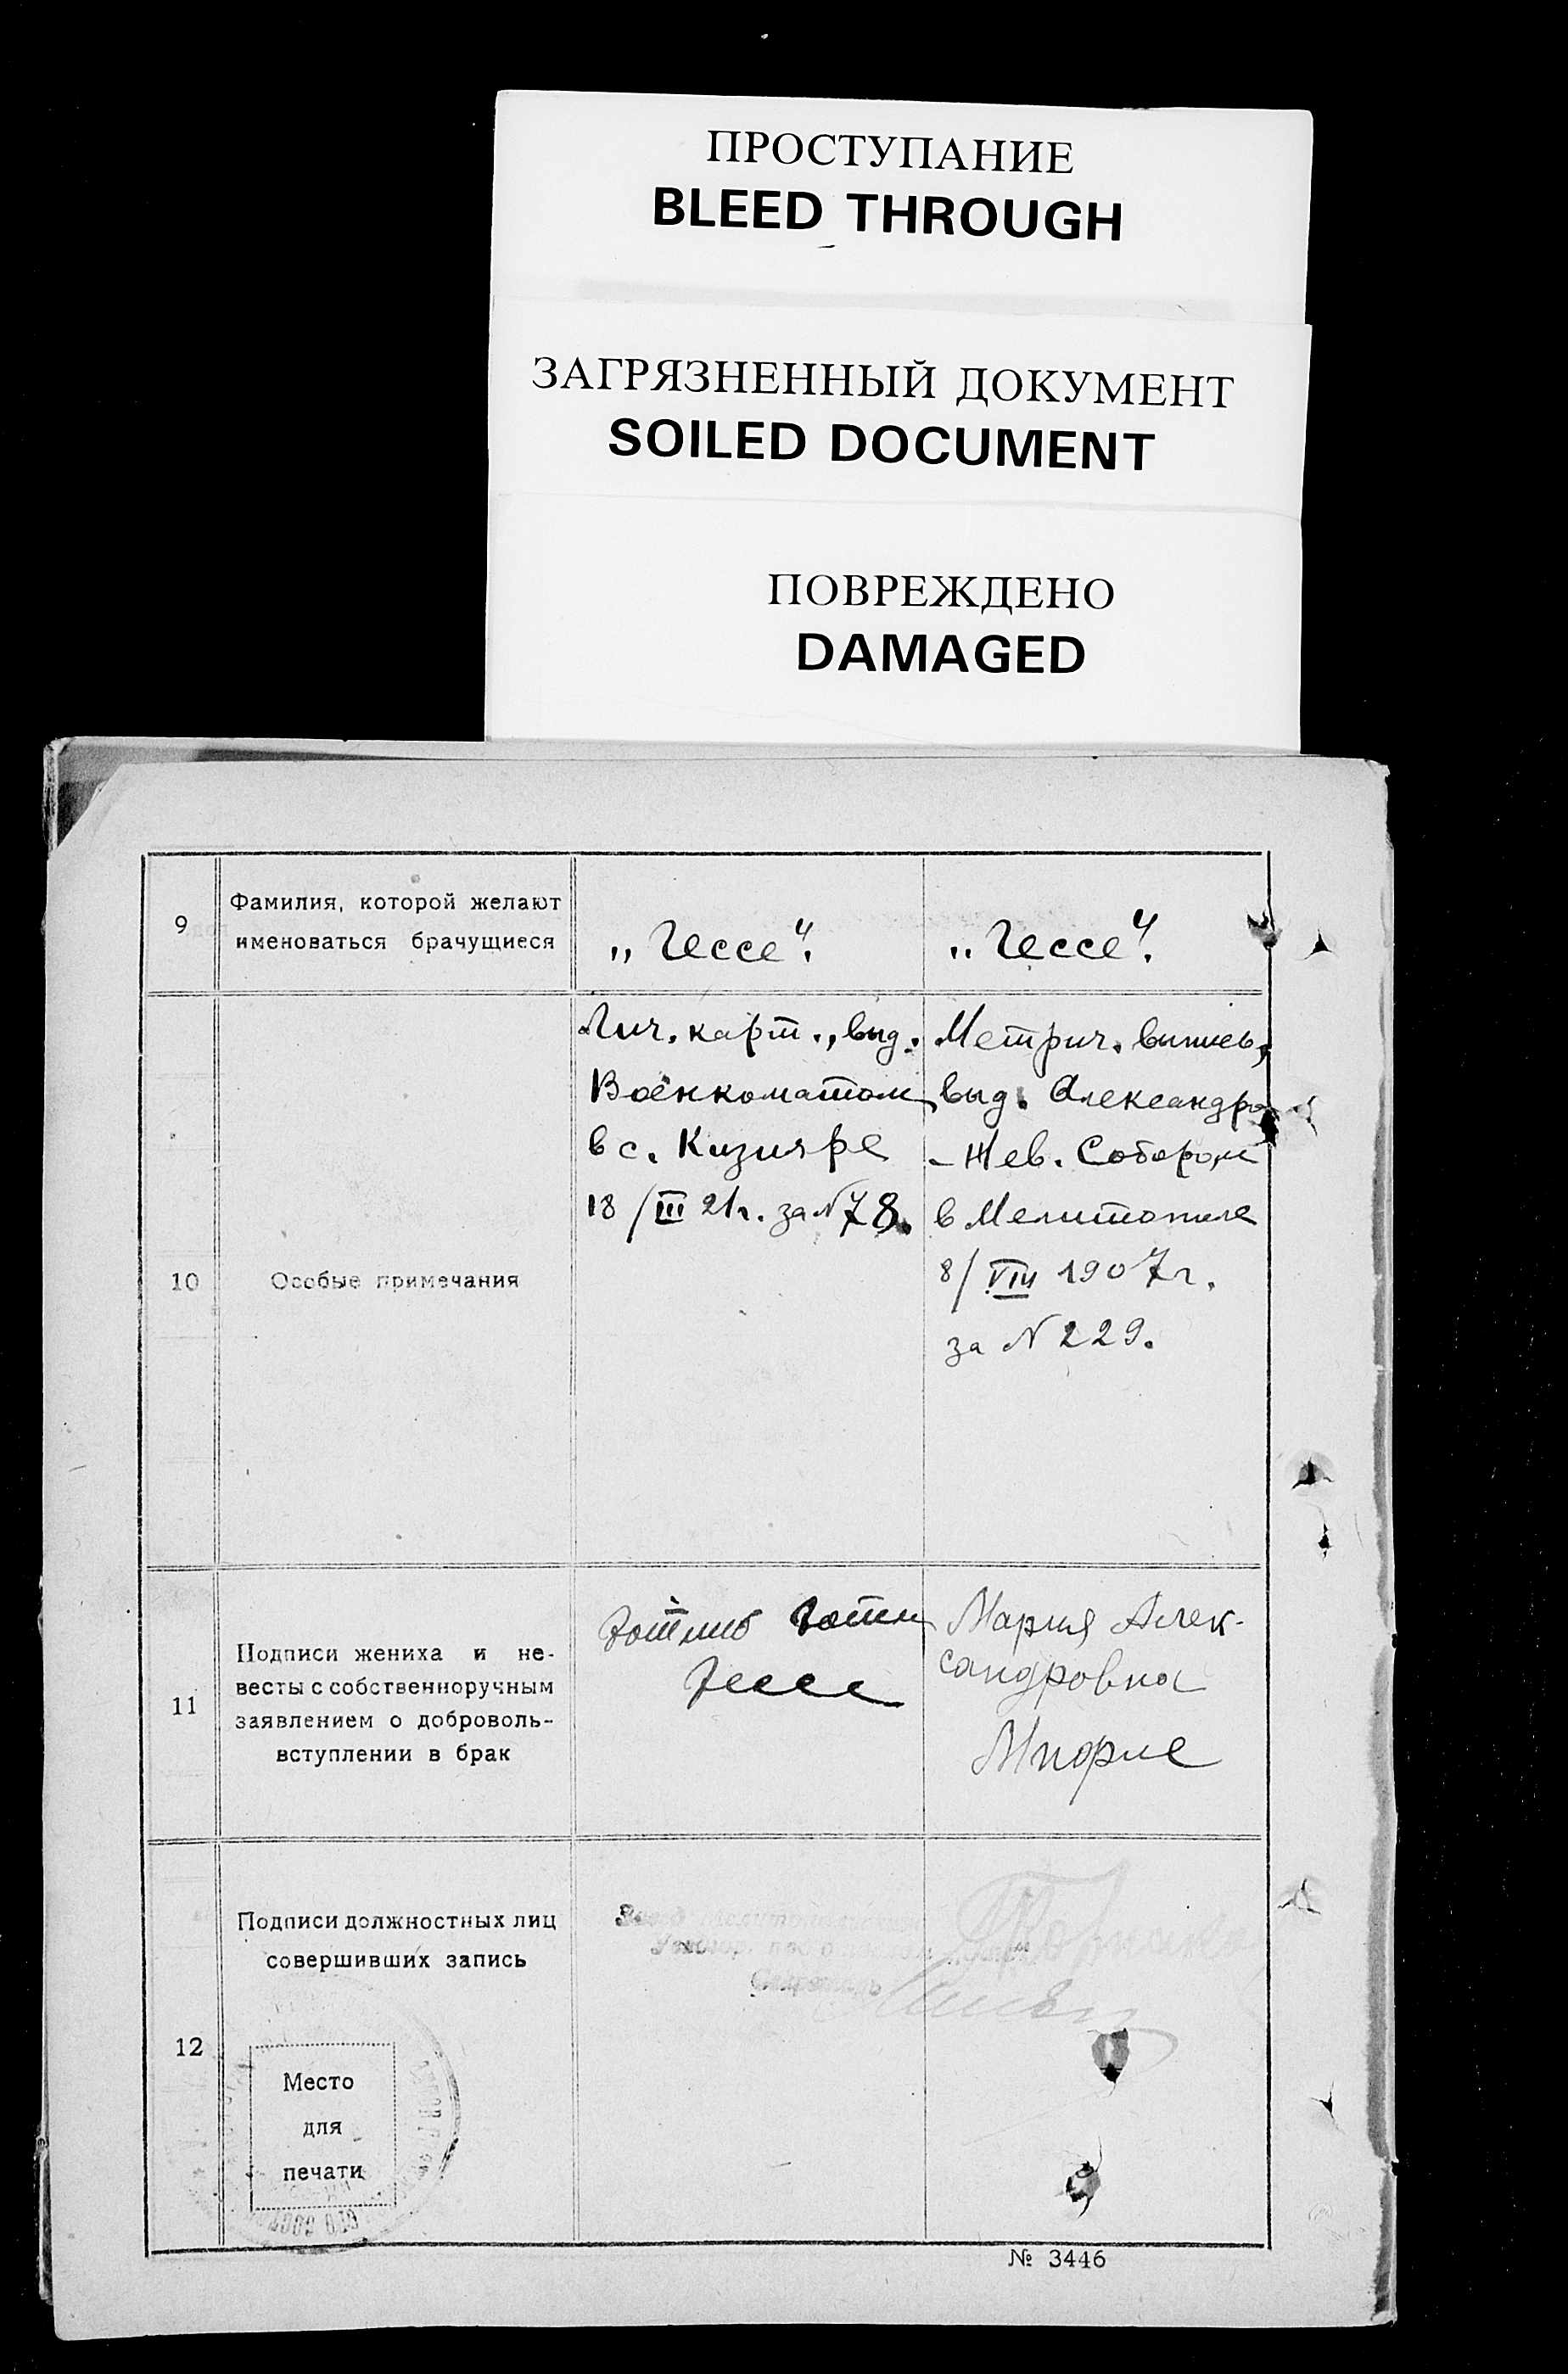 ПРОСТУПАНИЕ
BLEED THROUGH
ЗАГРЯЗНЕННЫЙ ДОКУМЕНТ
SOILED DOCUMENT
ПОВРЕЖДЕНО
DAMAGED
9
Фамилия, которой желают
именоваться брачущиеся
„Гессе“.
„Гессе“.
10
Особые примечания
Лич. карт., выд.
Военкоматом
в с. Кизияре
18/III 21г. за N78.
Метрич. выпись,
выд. Александро
-Нев. Собором
в Мелитополе
8/VIII 1907г.
за N 229.
11
Подписи жениха и не-
весты с собственноручным
заявлением о доброволь-
вступлении в брак
Готлиб
Гессе
Мария Алек-
сандровна
12
Подписи должностных лиц
совершивших запись
Место
для
печати
№ 3446